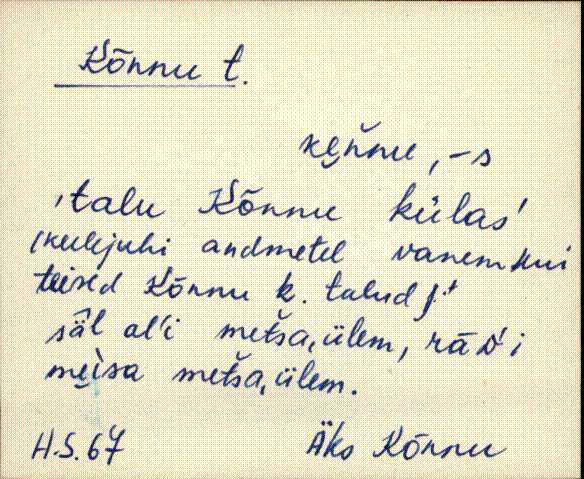 Kõnnu t.
ke̮ňnu, -s
'talu Kõnnu külas'
(kulejuhi andmetel vanem kui
teised Kõnnu k. talud).
säl ol'i metsa,ülem, rā D'i
me̮ìsa metsa,ülem.
H.S. 67 Äks Kõnnu